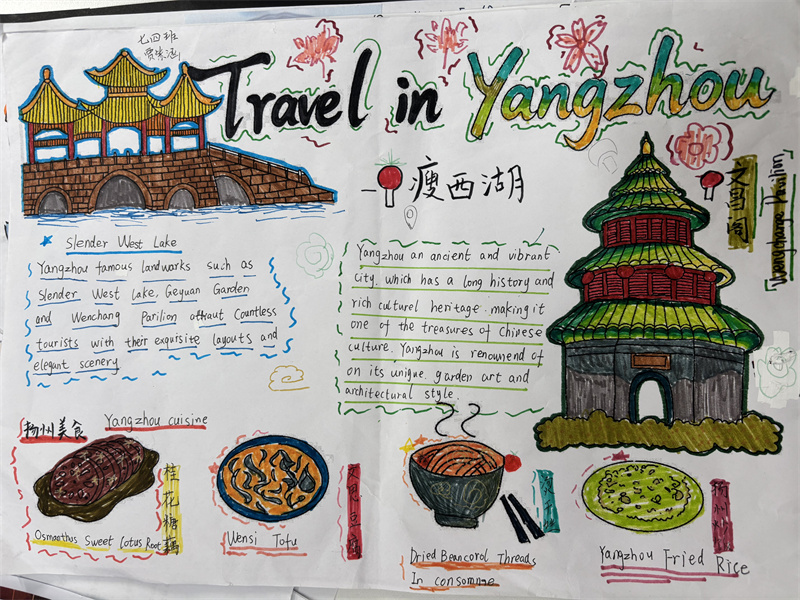 七四班
Travel in Yangzhou
瘦西湖
Pavilion
Slender West Lake
Yangzhou famous landwarks such as
Slender West Lake, Geyuan Garden
and Wenchang Parilion attraut Countless
tourists with their exquisite layouts and
elegant scenery
Yangzhou an ancient and vibrant
City, which has a long history and
rich culturel heritage. making it
one of the treasures of Chinese
culture. Yangzhou is renounend of
on its unique garden art and
architectural style.
扬州美食
Yangzhou cuisine
桂花糖藕
Osmanthus Sweet Lotus Root
文思豆腐
Wensi Tofu
Dried Beancorol Threads
In consomne
Yangzhou Fried Rice